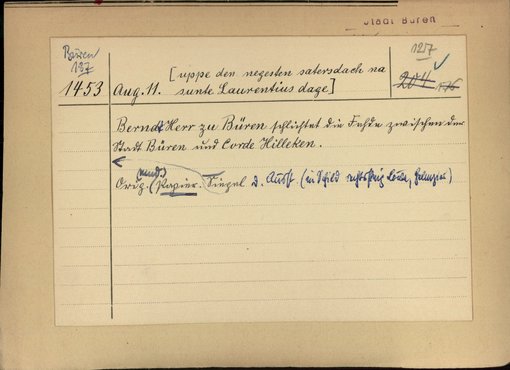 Stadt Büren
Büren
187
1257
204
176
1453
Aug. 11.
[uppe den negesten satersdach na
sunte Laurentius dage]
Bernd Herr zu Büren schlichtet die Fehde zwischen der
Stadt Büren und Corde Hilleken.
Orig. (Papier. Siegel d. Ausst. (im Schild